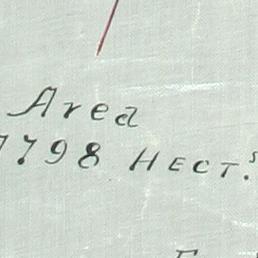 Area
7798 HECT.s